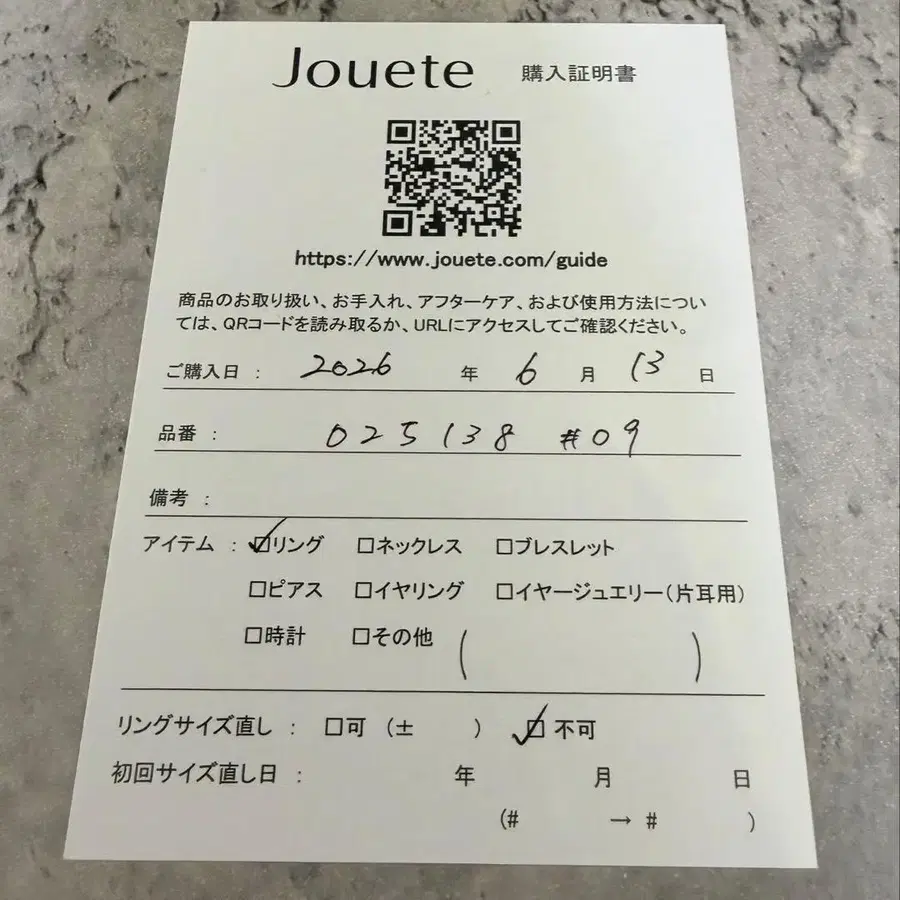 Jouete 購入証明書
https://www.jouete.com/guide
商品のお取り扱い、お手入れ、アフターケア、および使用方法につい
ては、QRコードを読み取るか、URLにアクセスしてご確認ください。
ご購入日 : 2026 年 6 月 13 日
品番 : 025138 #09
備考 :
アイテム : ☑リング □ネックレス □ブレスレット
□ピアス □イヤリング □イヤージュエリー(片耳用)
□時計 □その他 ( )
リングサイズ直し : □可 (± ) ☑不可
初回サイズ直し日 : 年 月 日
(# → # )